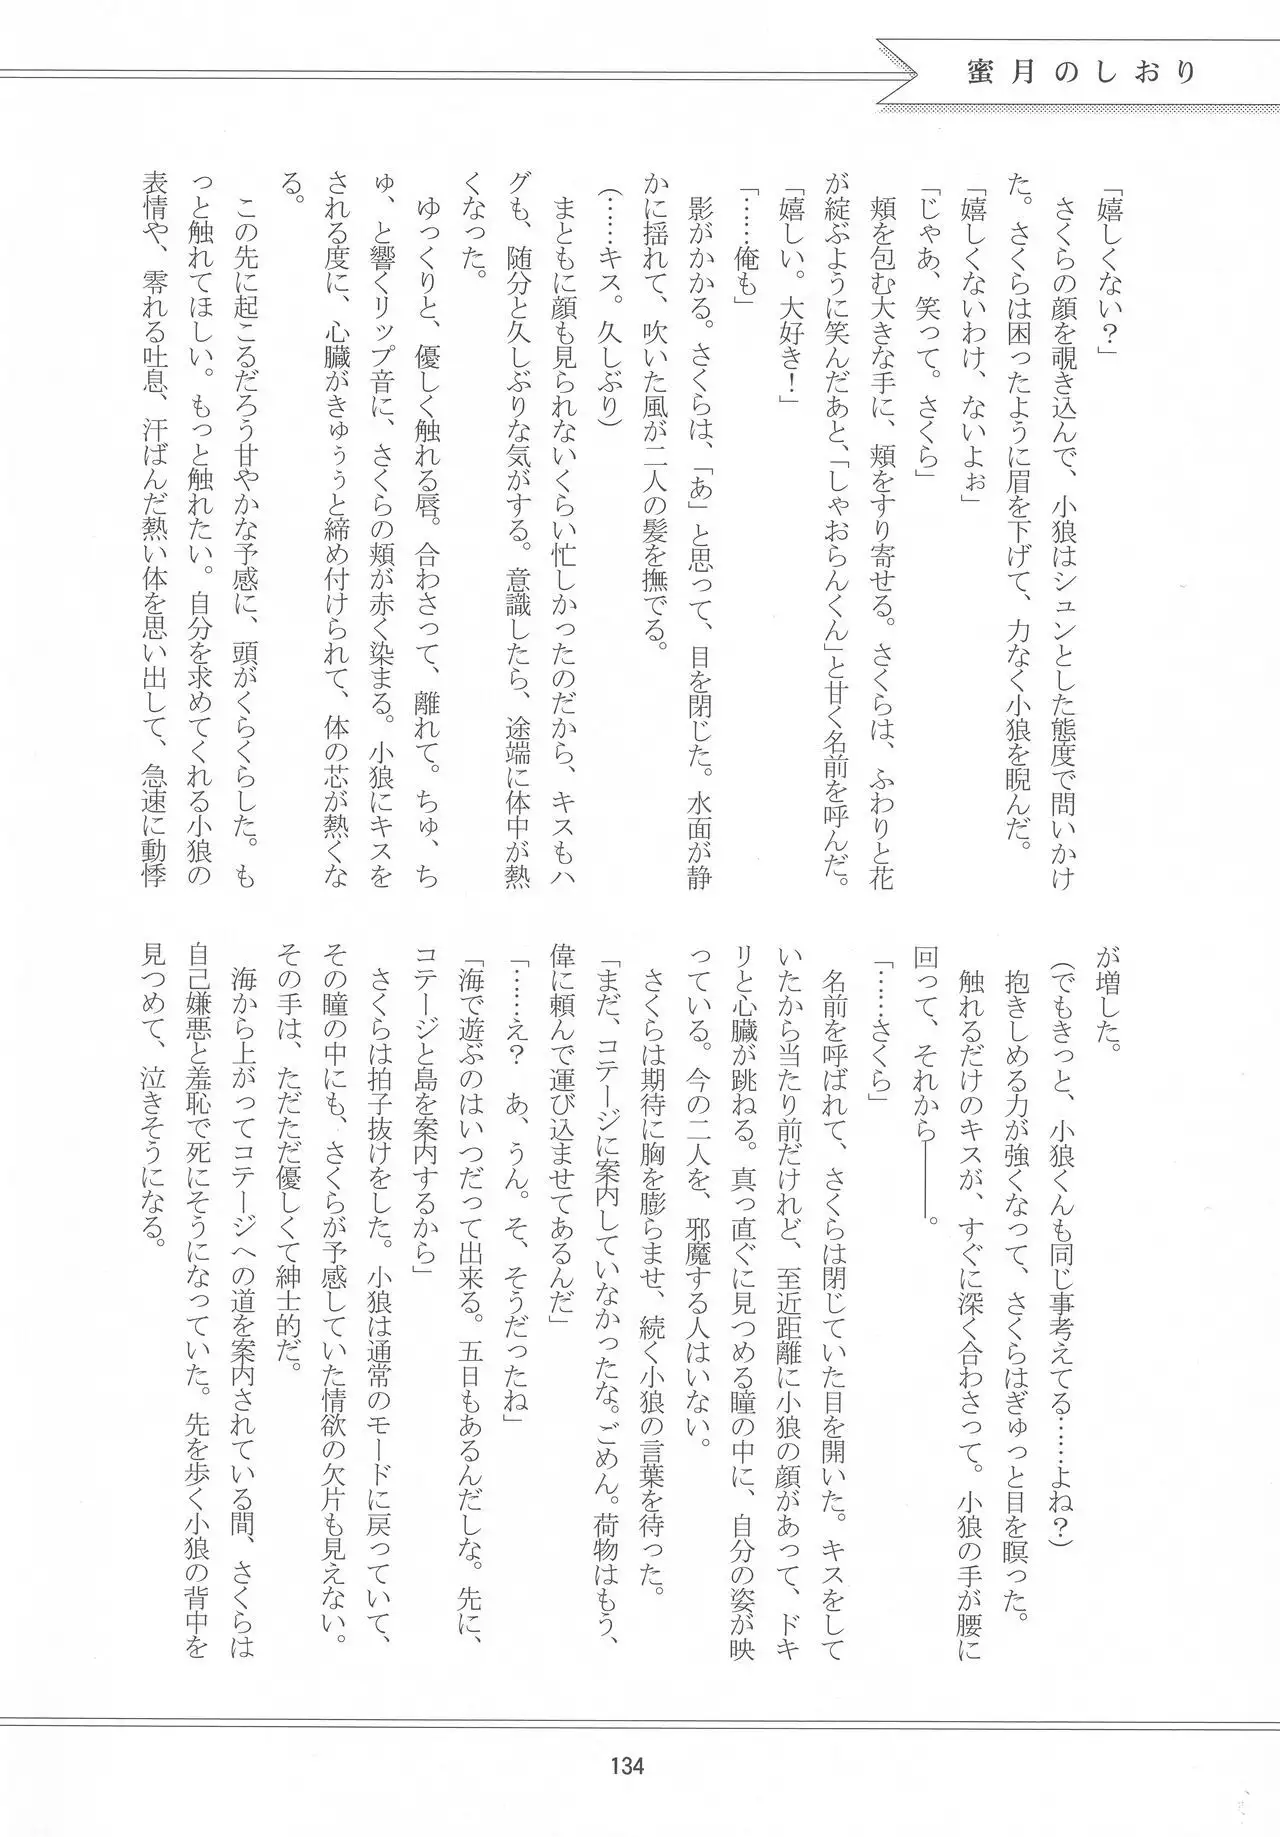 蜜月のしおり
「嬉しくない？」
　さくらの顔を覗き込んで、小狼はシュンとした態度で問いかけ
た。さくらは困ったように眉を下げて、力なく小狼を睨んだ。
「嬉しくないわけ、ないよぉ」
「じゃあ、笑って。さくら」
　頬を包む大きな手に、頬をすり寄せる。さくらは、ふわりと花
が綻ぶように笑んだあと、「しゃおらんくん」と甘く名前を呼んだ。
「嬉しい。大好き！」
「……俺も」
　影がかかる。さくらは、「あ」と思って、目を閉じた。水面が静
かに揺れて、吹いた風が二人の髪を撫でる。
（……キス。久しぶり）
　まともに顔も見られないくらい忙しかったのだから、キスもハ
グも、随分と久しぶりな気がする。意識したら、途端に体中が熱
くなった。
　ゆっくりと、優しく触れる唇。合わさって、離れて。ちゅ、ち
ゅ、と響くリップ音に、さくらの頬が赤く染まる。小狼にキスを
される度に、心臓がきゅぅぅと締め付けられて、体の芯が熱くな
る。
　この先に起こるだろう甘やかな予感に、頭がくらくらした。も
っと触れてほしい。もっと触れたい。自分を求めてくれる小狼の
表情や、零れる吐息、汗ばんだ熱い体を思い出して、急速に動悸
が増した。
（でもきっと、小狼くんも同じ事考えてる……よね？）
　抱きしめる力が強くなって、さくらはぎゅっと目を瞑った。
　触れるだけのキスが、すぐに深く合わさって。小狼の手が腰に
回って、それから――。
「……さくら」
　名前を呼ばれて、さくらは閉じていた目を開いた。キスをして
いたから当たり前だけれど、至近距離に小狼の顔があって、ドキ
リと心臓が跳ねる。真っ直ぐに見つめる瞳の中に、自分の姿が映
っている。今の二人を、邪魔する人はいない。
　さくらは期待に胸を膨らませ、続く小狼の言葉を待った。
「まだ、コテージに案内していなかったな。ごめん。荷物はもう、
偉に頼んで運び込ませてあるんだ」
「……え？　あ、うん。そ、そうだったね」
「海で遊ぶのはいつだって出来る。五日もあるんだしな。先に、
コテージと島を案内するから」
　さくらは拍子抜けをした。小狼は通常のモードに戻っていて、
その瞳の中にも、さくらが予感していた情欲の欠片も見えない。
その手は、ただただ優しくて紳士的だ。
　海から上がってコテージへの道を案内されている間、さくらは
自己嫌悪と羞恥で死にそうになっていた。先を歩く小狼の背中を
見つめて、泣きそうになる。
134